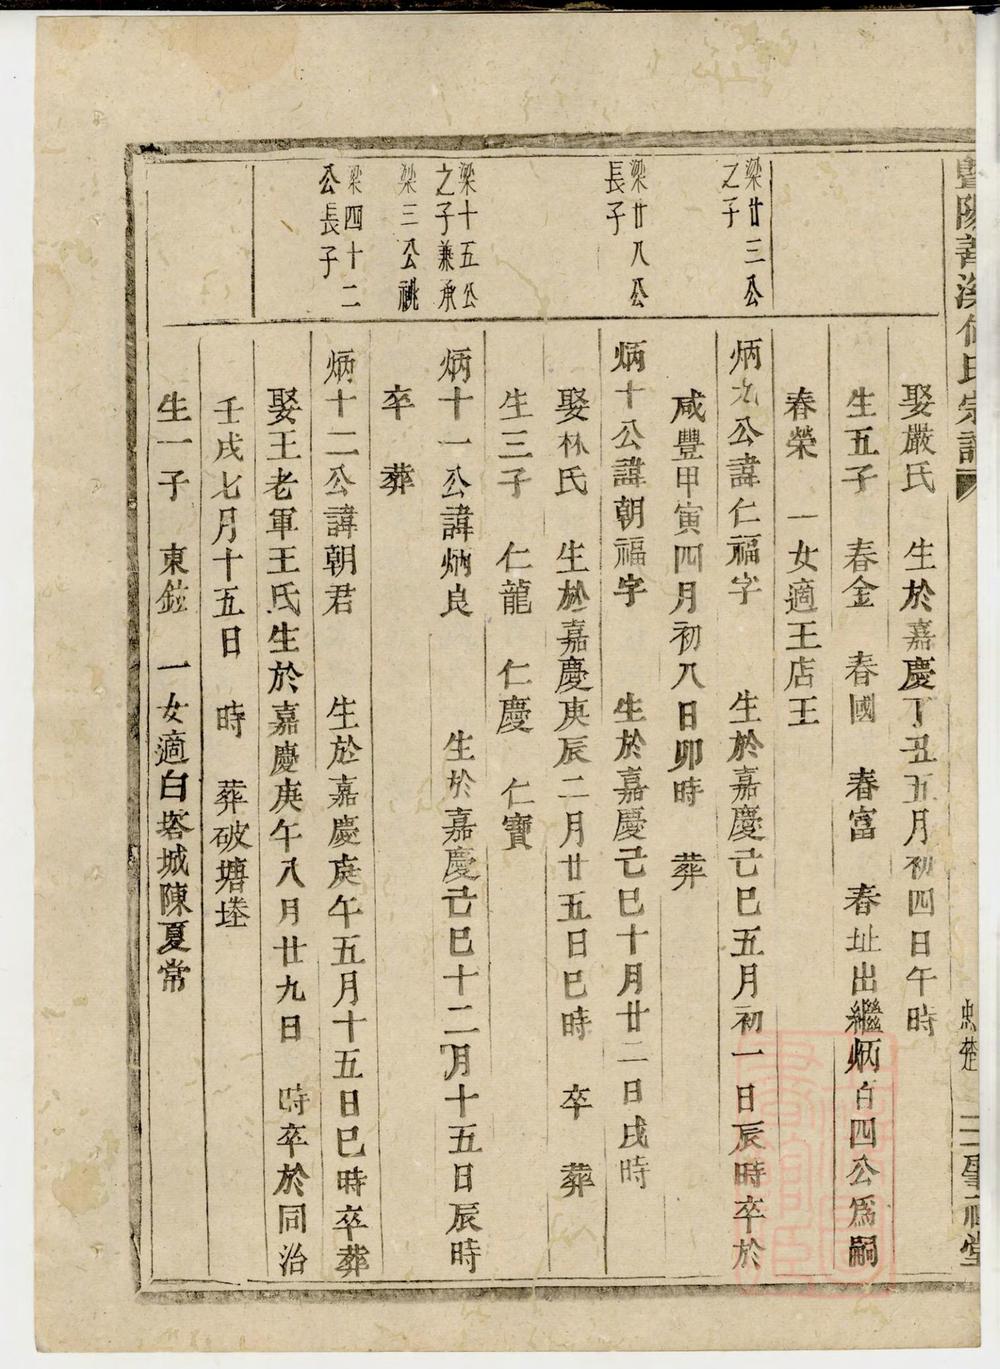 娶嚴氏 生於嘉慶丁丑五月初四日午時
生五子 春金 春國 春富 春址出繼炳百四公爲嗣
春榮 一女適王店王
梁廿三公
之子
炳九公諱仁福字 生於嘉慶己巳五月初一日辰時卒於
咸豐甲寅四月初八日卯時 葬
梁廿八公
長子
炳十公諱朝福字 生於嘉慶己巳十月廿二日戌時
娶林氏 生於嘉慶庚辰二月廿五日巳時 卒 葬
生三子 仁龍 仁慶 仁寶
梁十五公
之子兼承
梁三公祧
炳十一公諱炳良 生於嘉慶己巳十二月十五日辰時
卒 葬
梁四十二
公長子
炳十二公諱朝君 生於嘉慶庚午五月十五日巳時卒葬
娶王老軍王氏生於嘉慶庚午八月廿九日 時卒於同治
壬戌七月十五日 時 葬破塘塟
生一子 東鉉 一女適白塔城陳夏常